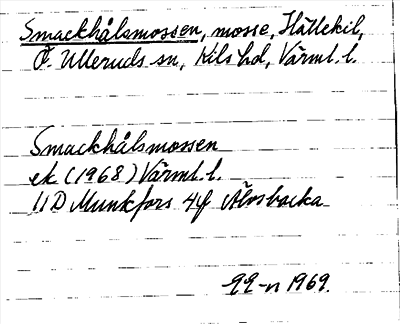 Smackhålsmossen, mosse, Hällekil,
Ö. Ulleruds sn, Kils hd, Värml. l.
Smackhålsmossen
ek (1968) Värml. l.
11D Munkfors 4f Älvsbacka
1969.